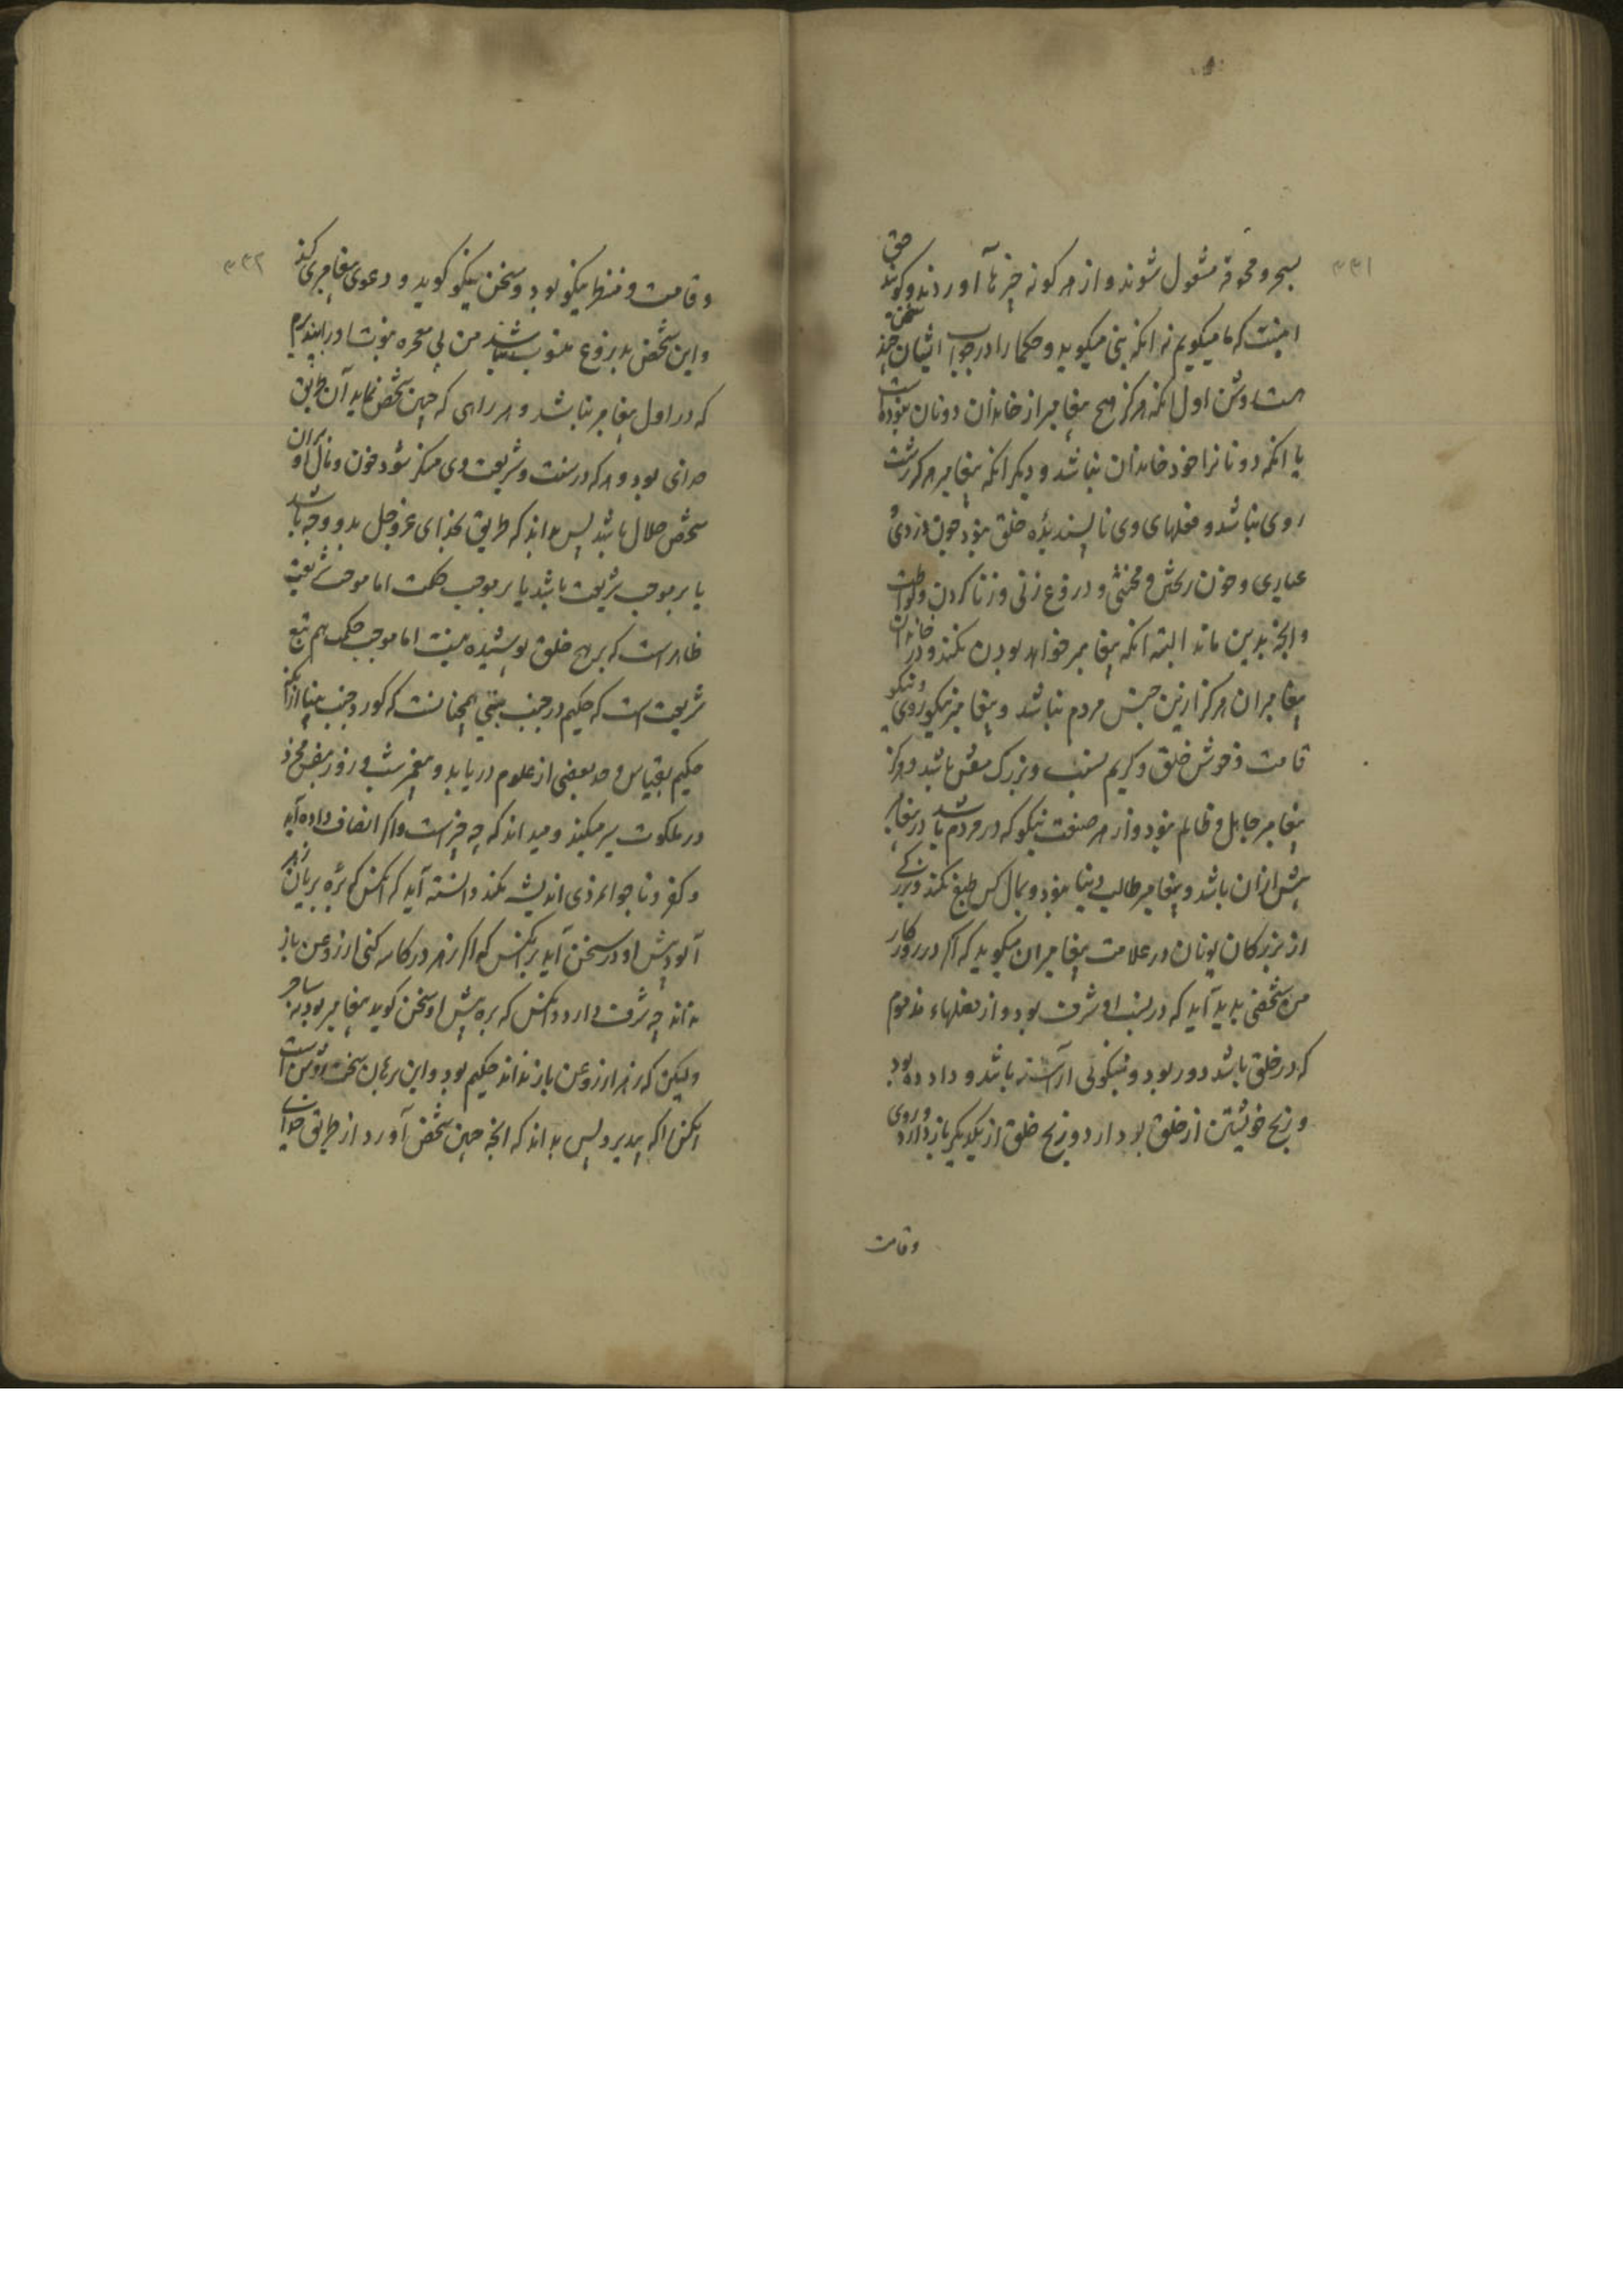 ۳۳۱
بسحر و مخرقه مشغول شوند و از هر کونه چیزها آوردند و کویند حق
اینست که ما میکویم نه انکه نبی میکوید و حکما را در جواب ایشان سخن چند
هست روشن اول انکه هرکز هیچ پیغامبر از خاندان دونان نبوده است
یا انکه دونانرا خود خاندان نباشد و دیکر انکه پیغامبر هرکز زشت
روی نباشد و فعلهای وی ناپسندیده خلق نبود چون دزدی و
عیاری و خون ریختن و مخنثی و دروغ زنی و زنا کردن و لواطت
و انچه بدین ماند البته انکه پیغامبر خواهد بودن نکند و در خاندان
پیغامبران هرکز ازین جنس مردم نباشد و پیغامبر نیکوروی و نیکو
قامت و خوش خلق و کریم نسب و بزرک منش باشد و هرکز
پیغامبر جاهل و ظالم نبود و از هر صنعت نیکو که در مردم باشد در پیغامبر
بیش ازان باشد و پیغامبر طالب دنیا نبود و بمال کس طمع نکند و بزرکی
از بزرکان یونان در علامت پیغامبران میکوید که اکر در روزکار
من شخصی پدید آید که در نسب او شرف بود و از فعلهاء مذموم
که در خلق باشد دور بود و بنیکوئی آراسته باشد و داد ده بود
و رنج خویشتن از خلق بردارد و رنج خلق از یکدیکر باز دارد و روی
وقامت
۳۳۲
و قامت و منظر نیکو بود و سخن نیکو کوید و دعوی پیغامبری کند
و این شخص بدروغ منسوب نباشد من بی معجزه نبوت او را بپذیرم
که در اول پیغامبر نباشد و هر راهی که چنین شخص نماید آن طریق
خدای بود و هر که در سنت و شریعت وی منکر شود خون و مال او بران
شخص حلال باشد پس بداند که طریق بخدای عز و جل بدو وجه باشد
یا بر موجب شریعت باشد یا بر موجب حکمت اما موجب شریعت
ظاهرست که بر هیچ خلق پوشیده نیست اما موجب حکمت هم تبع
شریعت است که حکیم در جنب نبی همچنانست که کور در جنب بینا ازانکه
حکیم بقیاس و حد بعضی از علوم دریابد و پیغمبر شب و روز بنفس مجرد
در ملکوت سیر میکند و میداند که چه چیزست و اکر انصاف داده آید
و کفر و ناجوانمردی اندیشه نکند دانسته آید که انکس که بره بریان زهر
آلود پیش او در سخن آید بر انکس که اکر زهر در کاسه کنی از روغن باز
نداند چه شرف دارد و انکس که بره پیش او سخن کوید پیغامبر بود نه ساحر
ولیکن که زهر از روغن باز نداند حکیم بود و این برهان سخت روشن است
انکس را که بپذیرد پس بداند که انچه چنین شخص آورد از طریق خدای